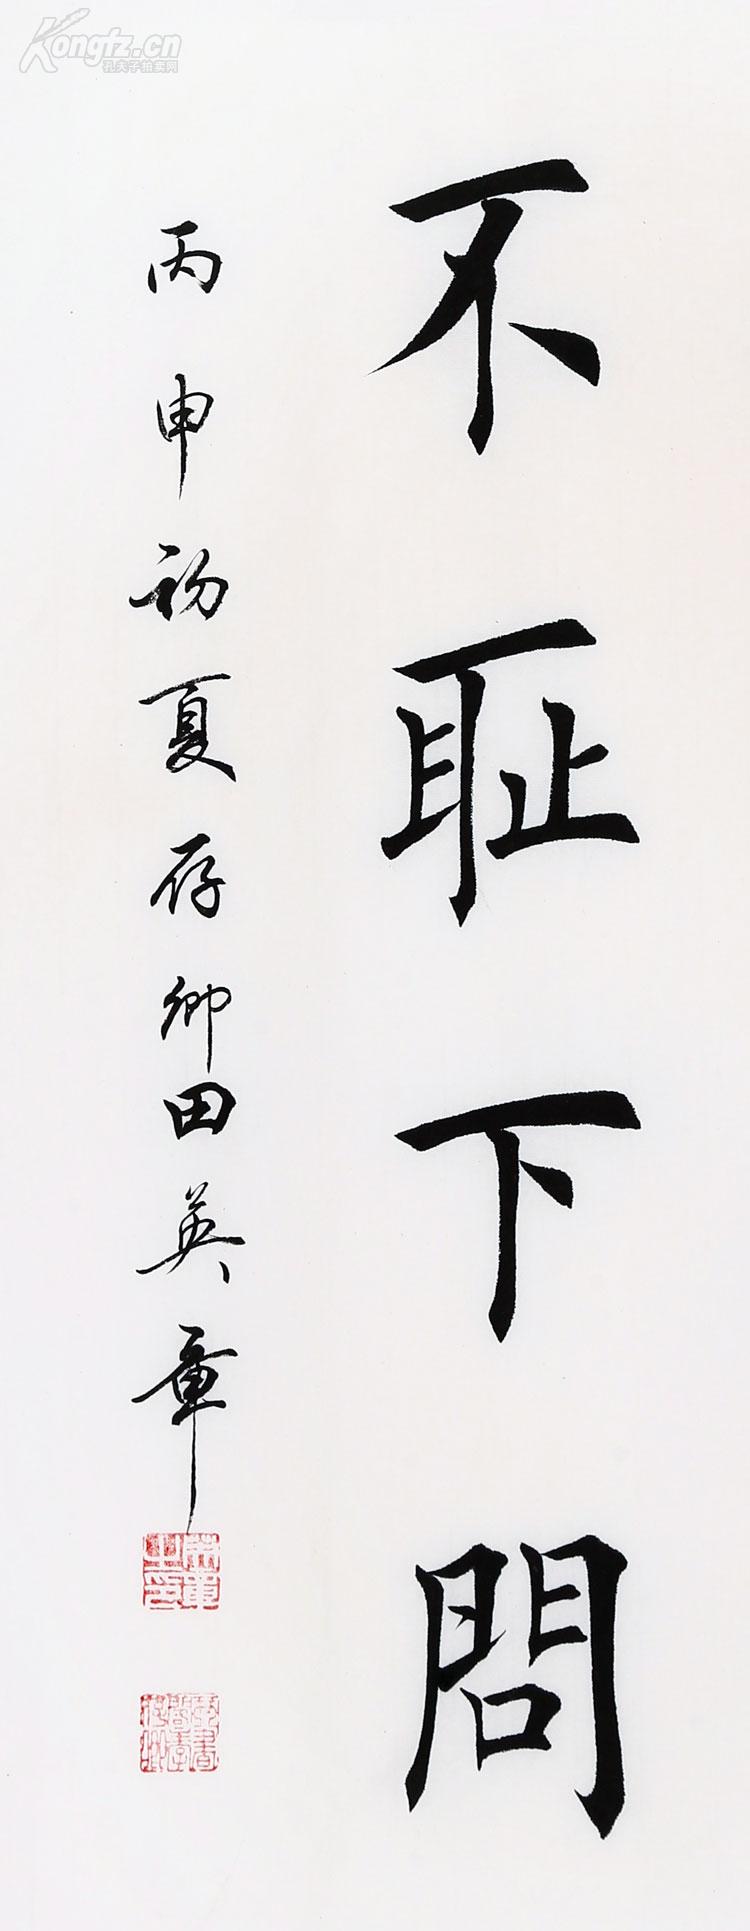 不耻下問
丙申初夏存卿田英章
Kongfz.cn
孔夫子拍卖网